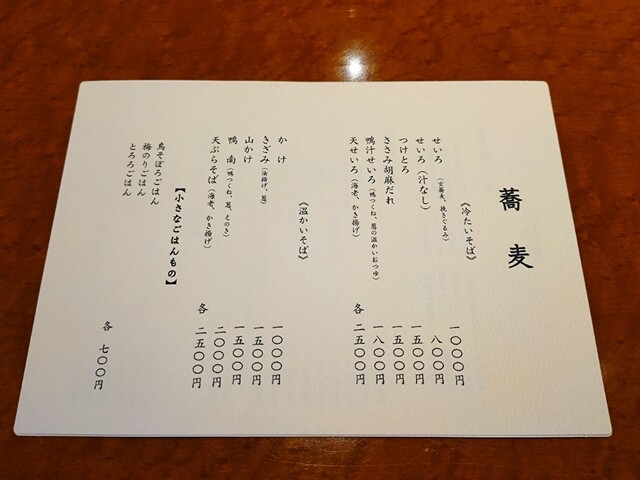 蕎麦
《冷たいそば》
せいろ (玄蕎麦、挽きぐるみ) 一〇〇〇円
せいろ(汁なし) 八〇〇円
つけとろ 一五〇〇円
ささみ胡麻だれ 一五〇〇円
鴨汁せいろ(鴨つくね、葱の温かいおつゆ) 一八〇〇円
天せいろ(海老、かき揚げ) 各 二五〇〇円
《温かいそば》
かけ 一〇〇〇円
きざみ(油揚げ、葱) 一五〇〇円
山かけ 一五〇〇円
鴨南(鴨つくね、葱、えのき) 二〇〇〇円
天ぷらそば(海老、かき揚げ) 各 二五〇〇円
【小さなごはんもの】
鳥そぼろごはん
梅のりごはん
とろろごはん
各 七〇〇円